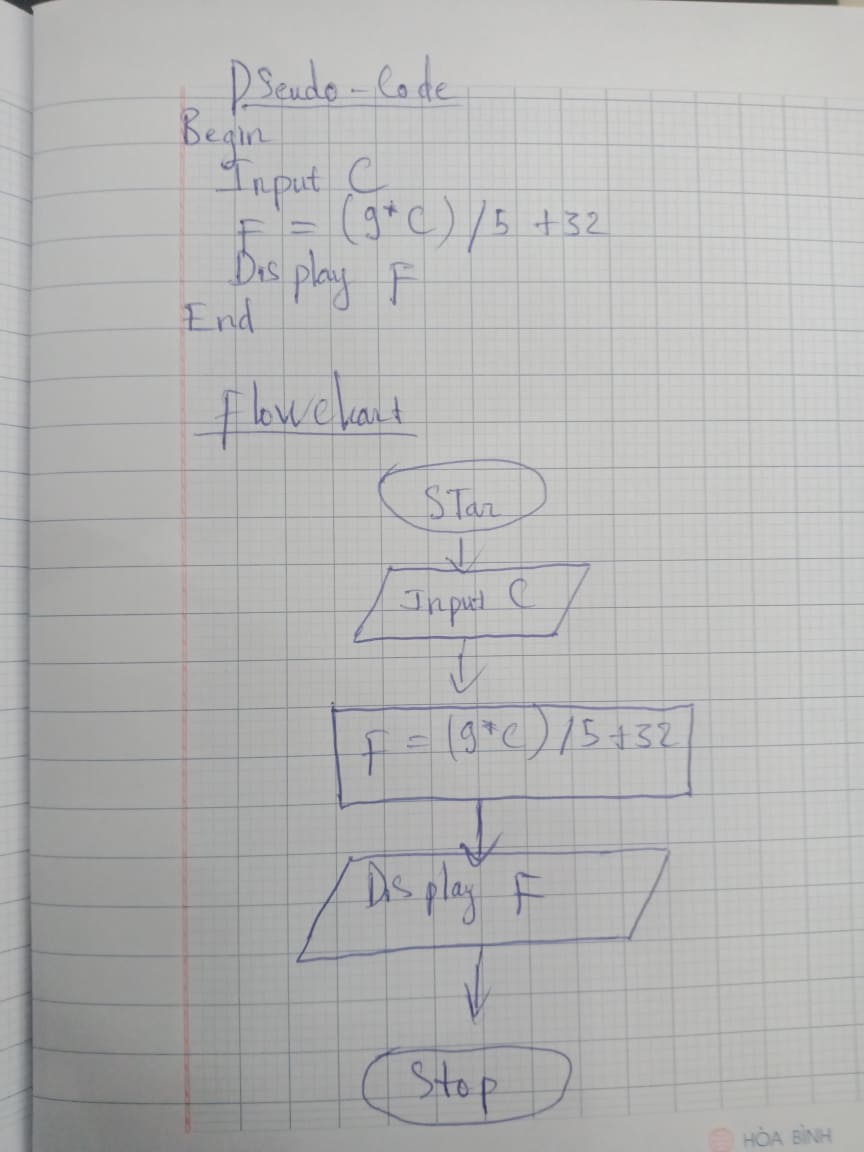 Pseudo-Code
Begin
Input C
F = (9*C) /5 +32
Display F
End
Flowchart
STar
Input C
F = (9*C) /5+32
Display F
Stop
HÒA BÌNH